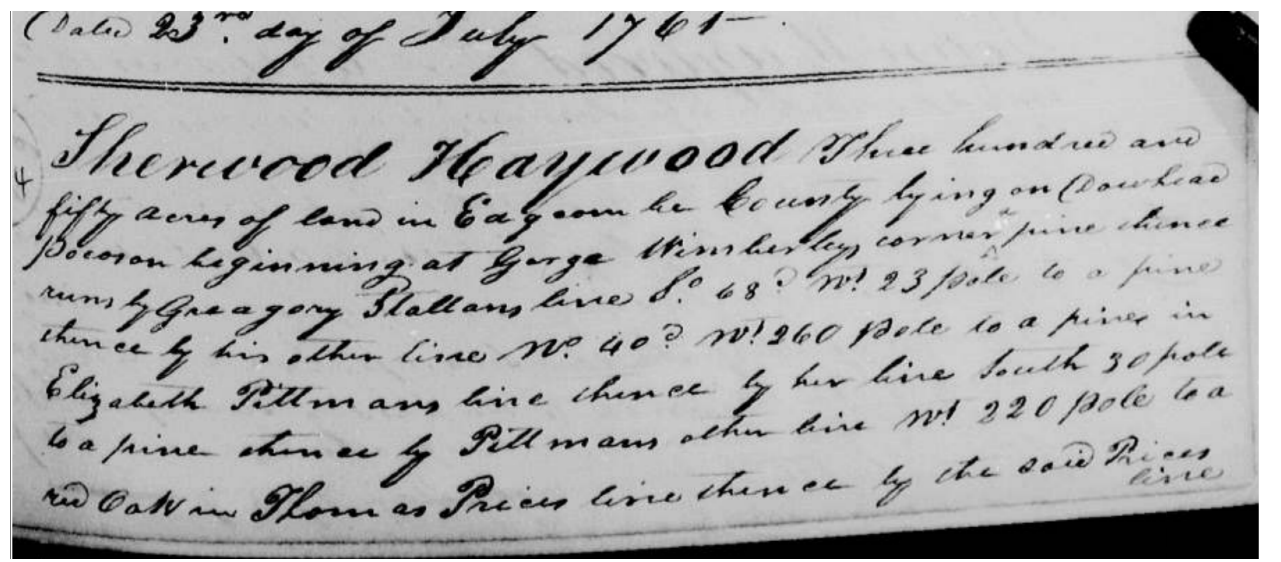 Dated 23rd. day of July 1761
4
Sherwood Haywood Three hundred and
fifty acres of land in Edgcombe County lying on
Pocoson beginning at Gorge Wimberleys corner pine thence
runs by Greagory Stallans line So. 68d. Wt. 23 pole to a pine
thence by his other line No. 40d. Wt. 260 pole to a pine in
Elizabeth Pittmans line thence by her line South 30 pole
to a pine thence by Pittmans other line Wt. 220 pole to a
red Oak in Thomas Prices line thence by the said Prices
line